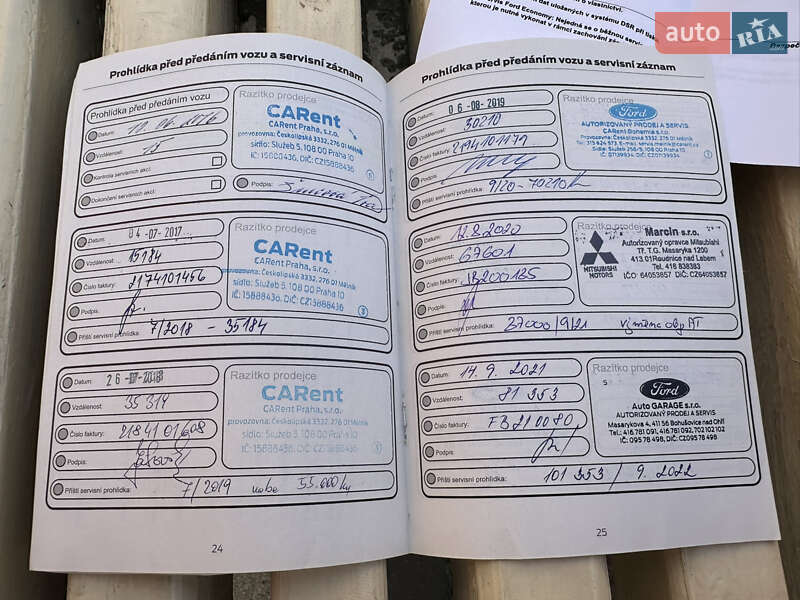 dat uložených v systému DSR při
rvis Ford Economy: Nejedná se o běžnou
kterou je nutné vykonat v rámci zachování
auto RIA
Prohlídka před předáním vozu a servisní záznam
Prohlídka před předáním vozu
Datum:
Vzdálenost: 15
Kontrola servisních akcí:
Dokončení servisních akcí:
Razítko prodejce
CARent
CARent Praha, s.r.o.
provozovna: Českolipská 3332, 276 01 Mělník
sídlo: Služeb 5, 108 00 Praha 10
IČ: 15888436, DIČ: CZ15888436
Podpis:
Datum: 04-07-2017
Vzdálenost: 15184
Číslo faktury: 2174101456
Podpis:
Příští servisní prohlídka: 7/2018 - 35184
Razítko prodejce
CARent
CARent Praha, s.r.o.
provozovna: Českolipská 3332, 276 01 Mělník
sídlo: Služeb 5, 108 00 Praha 10
IČ: 15888436, DIČ: CZ15888436
Datum: 26-07-2018
Vzdálenost: 35314
Číslo faktury: 2184101608
Podpis:
Příští servisní prohlídka: 7/2019 nebo 55.000 km
Razítko prodejce
CARent
CARent Praha, s.r.o.
provozovna: Českolipská 3332, 276 01 Mělník
sídlo: Služeb 5, 108 00 Praha 10
IČ: 15888436, DIČ: CZ15888436
24
Prohlídka před předáním vozu a servisní záznam
Datum: 06-08-2019
Vzdálenost: 50210
Číslo faktury: 2194101171
Podpis:
Příští servisní prohlídka: 9/20 - 70210
Razítko prodejce
Ford
AUTORIZOVANÝ PRODEJ A SERVIS
CARent Bohemia s.r.o.
Provozovna: Českolipská 3332, 276 01 Mělník
Sídlo: Služeb 256/5, 108 00 Praha 10
Datum: 12.8.2020
Vzdálenost: 67601
Číslo faktury:
Podpis:
Příští servisní prohlídka: 87000/9/21 výměna obj AT
Razítko prodejce
MITSUBISHI MOTORS
Marcin s.r.o.
Autorizovaný opravce Mitsubishi
TP. T.G. Masaryka 1200
413 01 Roudnice nad Labem
Tel. 416 838383
IČO: 64053857 DIČ: CZ64053857
Datum: 14.9.2021
Vzdálenost: 81 353
Číslo faktury: FB210080
Podpis:
Příští servisní prohlídka: 101 353 / 9. 2022
Razítko prodejce
Ford
Auto GARAGE s.r.o.
AUTORIZOVANÝ PRODEJ A SERVIS
Masarykova 4, 411 56 Bohušovice nad Ohří
Tel.: 416 781 091, 416 781 092, 702 102 102
IČ: 095 78 498, DIČ: CZ095 78 498
25